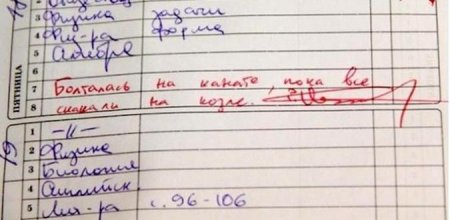 3 Физика задачи
4 Физ-ра форма
5 Алгебра
6
ПЯТНИЦА
7 Болталась на канате, пока все
8 скакали на козле.
19
1 -//-
2 Физика
3 Биология
4 Английск.
5 Лит-ра с. 96-106